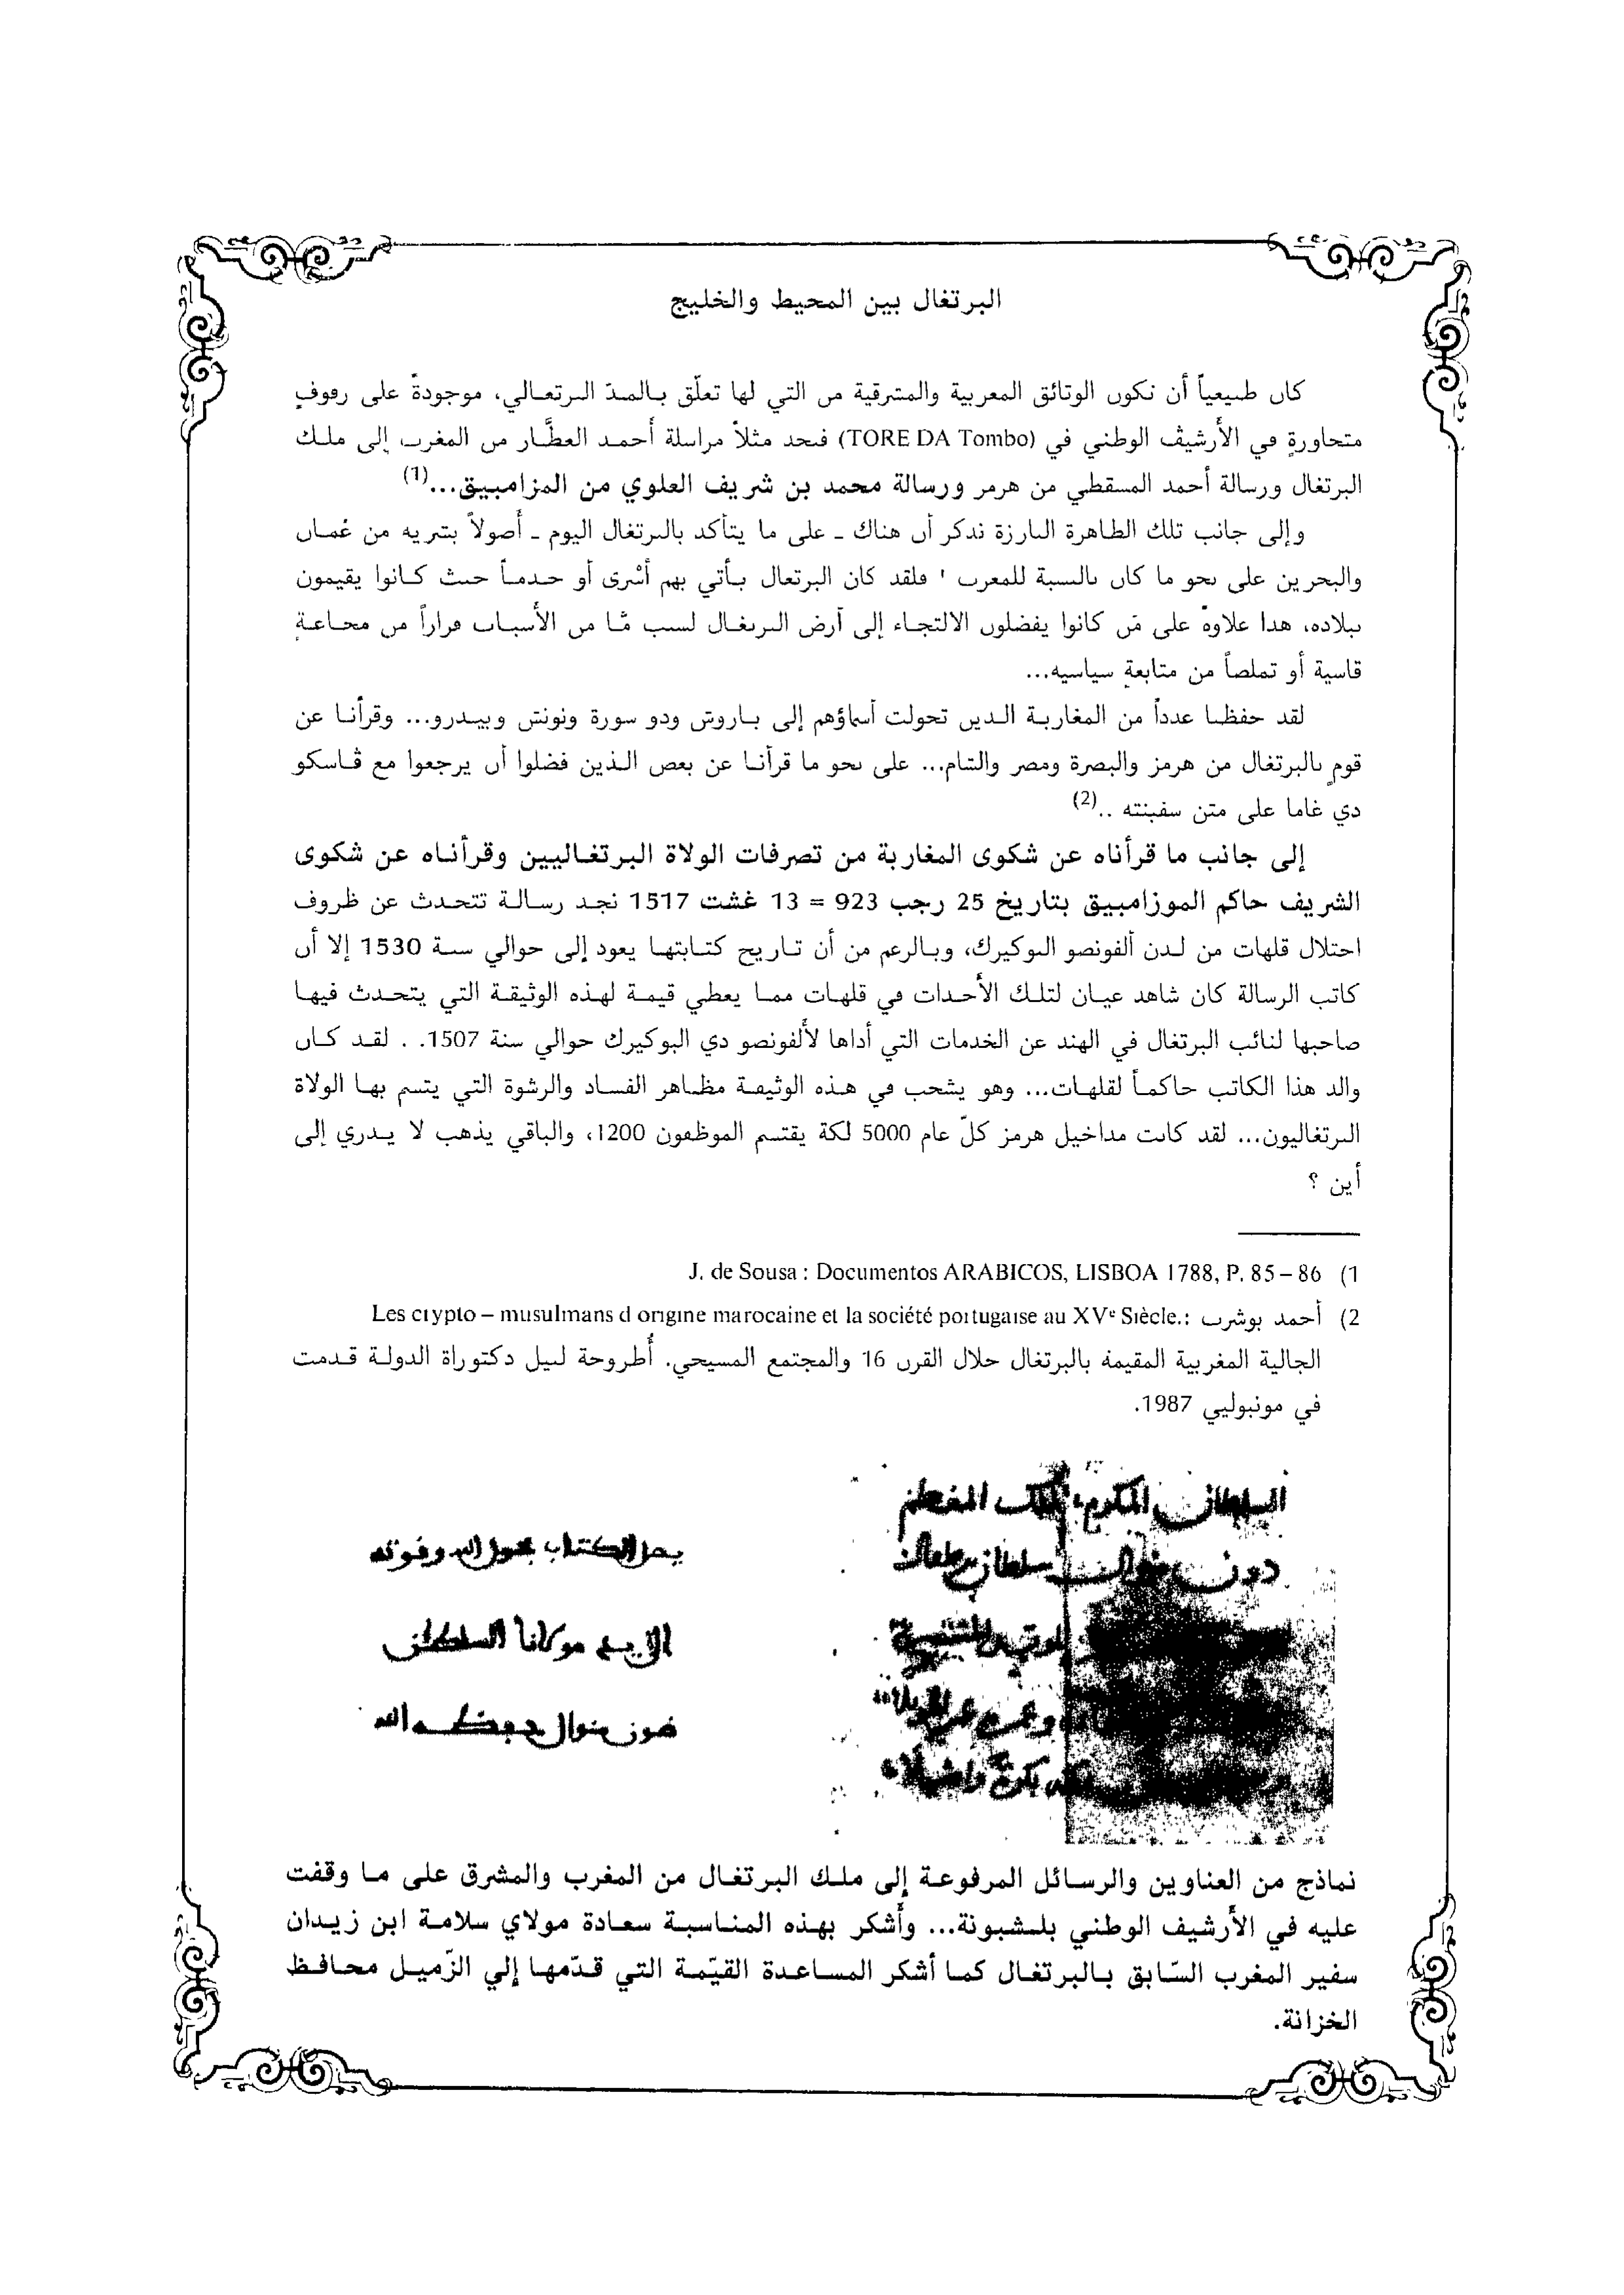 البرتغال بين المحيط والخليج
كان طبيعياً أن تكون الوثائق المغربية والمشرقية من التي لها تعلّق بالمدّ البرتغالي، موجودةً على رفوفٍ
متجاورةٍ في الأرشيڤ الوطني في (TORE DA Tombo) فنجد مثلاً مراسلة أحمد العطَّار من المغرب إلى ملك
البرتغال ورسالة أحمد المسقطي من هرمز ورسالة محمد بن شريف العلوي من المزامبيق...(1)
وإلى جانب تلك الظاهرة البارزة نذكر أن هناك ـ على ما يتأكد بالبرتغال اليوم ـ أصولاً بشرية من عُمان
والبحرين على نحو ما كان بالنسبة للمغرب ! فلقد كان البرتغال يأتي بهم أسْرى أو خدماً حيث كانوا يقيمون
ببلاده، هذا علاوة على مَن كانوا يفضلون الالتجاء إلى أرض البرتغال لسبب مّا من الأسباب فراراً من مجاعةٍ
قاسية أو تملصاً من متابعةٍ سياسية...
لقد حفظنا عدداً من المغاربة الذين تحولت أسماؤهم إلى باروش ودو سورة ونونش وبيدرو... وقرأنا عن
قومٍ بالبرتغال من هرمز والبصرة ومصر والشام... على نحو ما قرأنا عن بعض الذين فضلوا أن يرجعوا مع ڤاسكو
دي غاما على متن سفينته ..(2)
إلى جانب ما قرأناه عن شكوى المغاربة من تصرفات الولاة البرتغاليين وقرأناه عن شكوى
الشريف حاكم الموزامبيق بتاريخ 25 رجب 923 = 13 غشت 1517 نجد رسالة تتحدث عن ظروف
احتلال قلهات من لدن ألفونصو البوكيرك، وبالرغم من أن تاريخ كتابتها يعود إلى حوالي سنة 1530 إلا أن
كاتب الرسالة كان شاهد عيان لتلك الأحداث في قلهات مما يعطي قيمة لهذه الوثيقة التي يتحدث فيها
صاحبها لنائب البرتغال في الهند عن الخدمات التي أداها لألفونصو دي البوكيرك حوالي سنة 1507. . لقد كان
والد هذا الكاتب حاكماً لقلهات... وهو يشجب في هذه الوثيقة مظاهر الفساد والرشوة التي يتسم بها الولاة
البرتغاليون... لقد كانت مداخيل هرمز كلّ عام 5000 لكة يقتسم الموظفون 1200، والباقي يذهب لا يدري إلى
أين ؟
1) J. de Sousa : Documentos ARABICOS, LISBOA 1788, P. 85 – 86
2) أحمد بوشرب : Les crypto – musulmans d origine marocaine et la société portugaise au XVe Siècle.
الجالية المغربية المقيمة بالبرتغال خلال القرن 16 والمجتمع المسيحي. أُطروحة لنيل دكتوراة الدولة قدمت
في مونبوليي 1987.
السلطان المكرم الملك المعظم
سلطان برطقال
يصل الكتاب بحول الله وقوته
مولانا السلطان
الله
نماذج من العناوين والرسائل المرفوعة إلى ملك البرتغال من المغرب والمشرق على ما وقفت
عليه في الأرشيف الوطني بلشبونة... وأشكر بهذه المناسبة سعادة مولاي سلامة ابن زيدان
سفير المغرب السّابق بالبرتغال كما أشكر المساعدة القيّمة التي قدّمها إلي الزّميل محافظ
الخزانة.